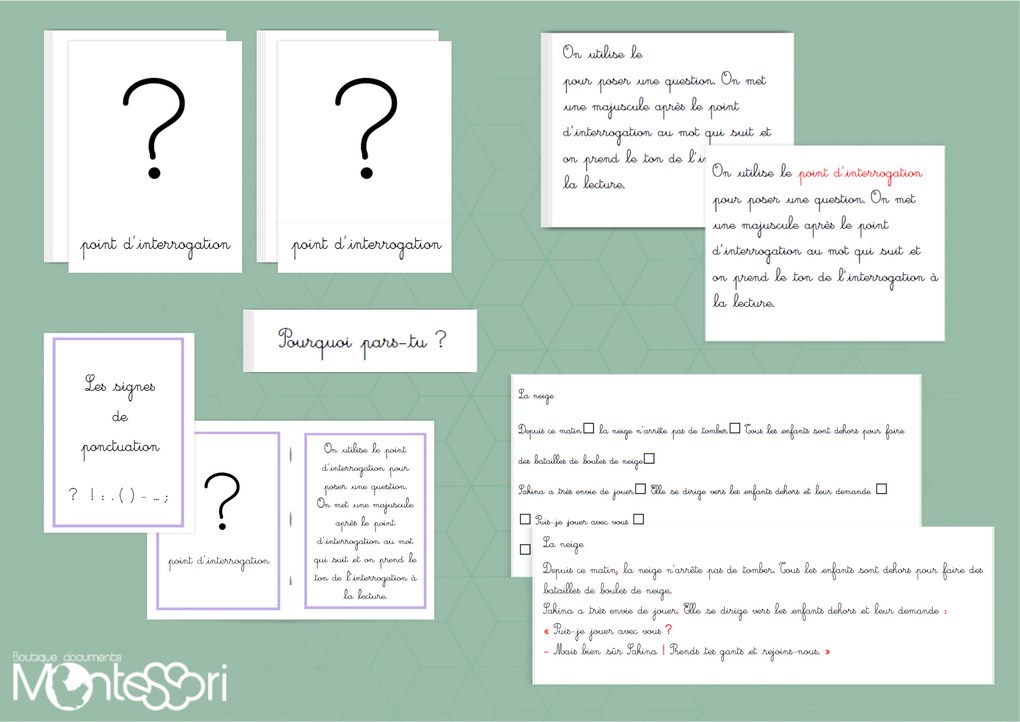 ?
point d'interrogation
?
point d'interrogation
On utilise le
pour poser une question. On met
une majuscule après le point
d'interrogation au mot qui suit et
on prend le ton de l'in
la lecture.
On utilise le point d'interrogation
pour poser une question. On met
une majuscule après le point
d'interrogation au mot qui suit et
on prend le ton de l'interrogation à
la lecture.
Pourquoi pars-tu ?
Les signes
de
ponctuation
? ! : . ( ) - … ;
?
point d'interrogation
On utilise le point
d'interrogation pour
poser une question.
On met une majuscule
après le point
d'interrogation au mot
qui suit et on prend le
ton de l'interrogation à
la lecture.
La neige
Depuis ce matin□ la neige n'arrête pas de tomber□ Tous les enfants sont dehors pour faire
des batailles de boules de neige□
Sakina a très envie de jouer□ Elle se dirige vers les enfants dehors et leur demande □
□ Puis-je jouer avec vous □
□
La neige
Depuis ce matin, la neige n'arrête pas de tomber. Tous les enfants sont dehors pour faire des
batailles de boules de neige.
Sakina a très envie de jouer. Elle se dirige vers les enfants dehors et leur demande :
« Puis-je jouer avec vous ?
- Mais bien sûr Sakina ! Prends tes gants et rejoins-nous. »
Boutique documents
Montessori